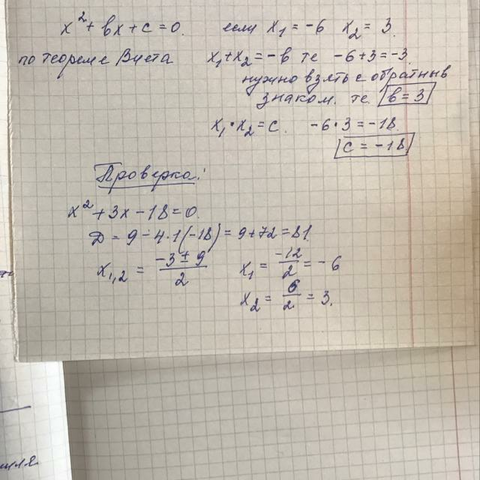 x² + bx + c = 0. если x₁ = -6 x₂ = 3.
по теореме Виета x₁ + x₂ = -b те -6+3 = -3.
нужно взять с обратным
знаком. те. b = 3
x₁ • x₂ = c. -6 • 3 = -18.
c = -18.
Проверка:
x² + 3x - 18 = 0.
D = 9 - 4·1(-18) = 9 + 72 = 81
x₁,₂ = (-3 ± 9)/2 x₁ = -12/2 = -6
x₂ = 6/2 = 3.